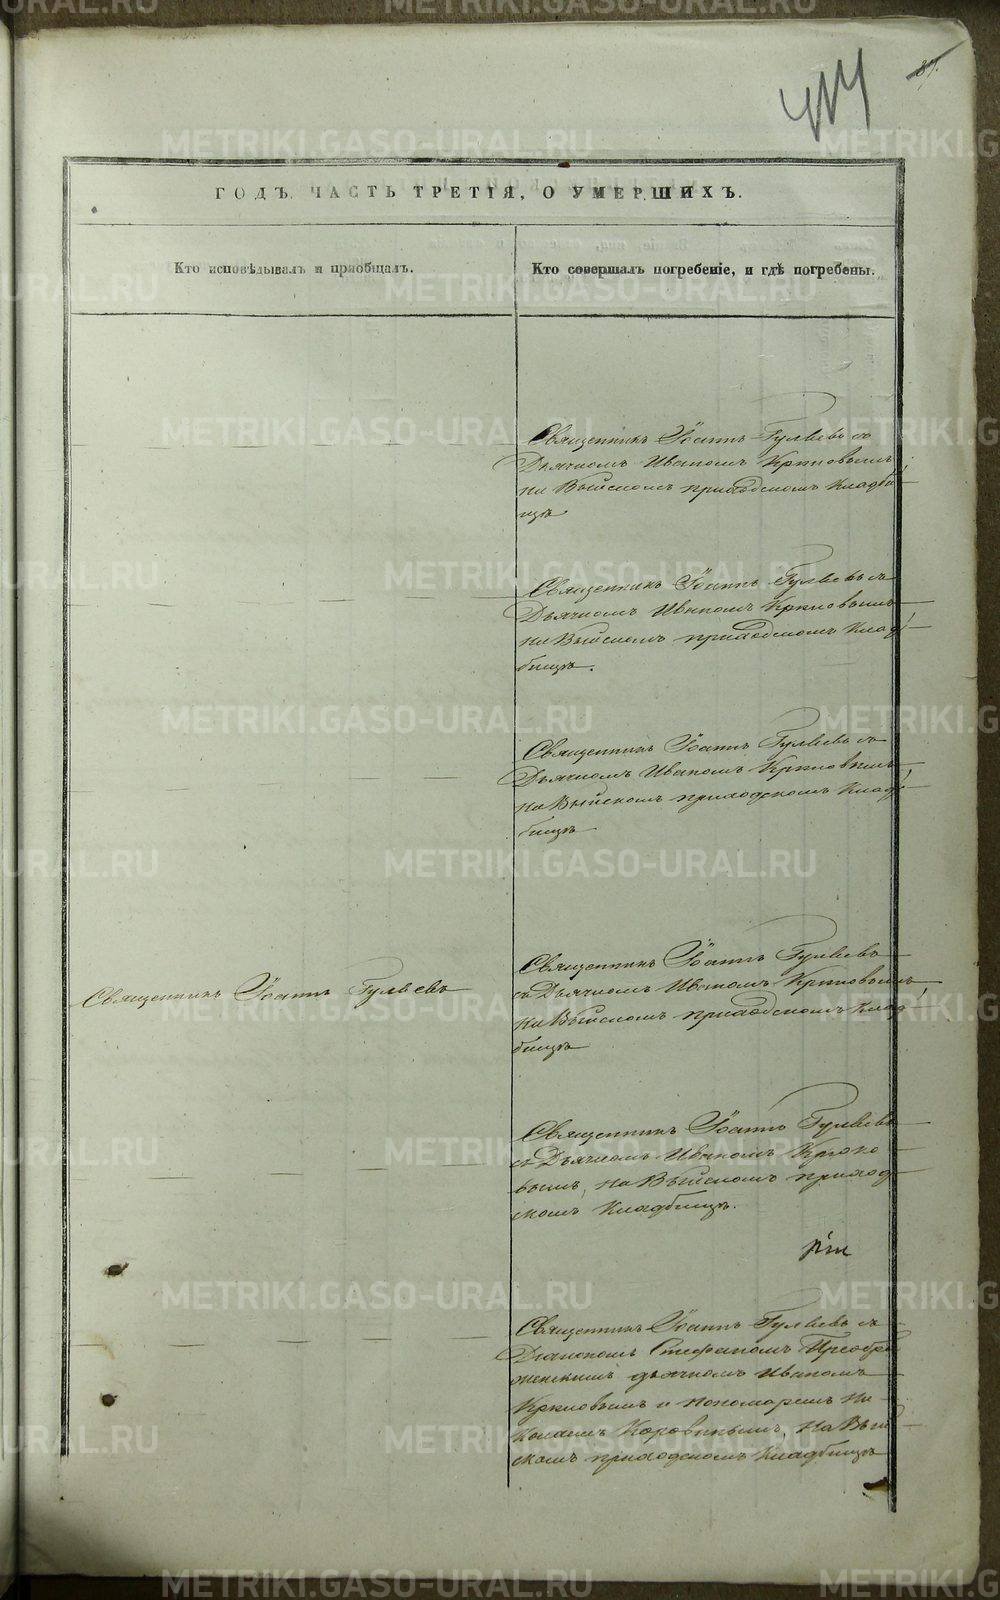 87.
ГОДЪ. ЧАСТЬ ТРЕТІЯ, О УМЕРШИХЪ.
Кто исповѣдывалъ и пріобщалъ.
Кто совершалъ погребеніе, и гдѣ погребены.
Священникъ Іоаннъ Гуляевъ съ
Дьячкомъ Иваномъ Крюковымъ,
на Выйскомъ приходскомъ кладби
щѣ
Священникъ Іоаннъ Гуляевъ съ
Дьячкомъ Иваномъ Крюковымъ
на Выйскомъ приходскомъ клад
бищѣ.
Священникъ Іоаннъ Гуляевъ съ
Дьячкомъ Иваномъ Крюковымъ
на Выйскомъ приходскомъ клад
бищѣ
Священникъ Іоаннъ Гуляевъ
Священникъ Іоаннъ Гуляевъ
съ Дьячкомъ Иваномъ Крюковымъ
на Выйскомъ приходскомъ клад
бищѣ
Священникъ Іоаннъ Гуляевъ
съ Дьячкомъ Иваномъ Крюко
вымъ, на Выйскомъ приход
скомъ кладбищѣ.
Священникъ Іоаннъ Гуляевъ съ
Діакономъ Стефаномъ Преобра
женскимъ дьячкомъ Иваномъ
Крюковымъ и пономаремъ Ни
колаемъ Коровинымъ, на Вый
скомъ приходскомъ кладбищѣ
METRIKI.GASO-URAL.RU